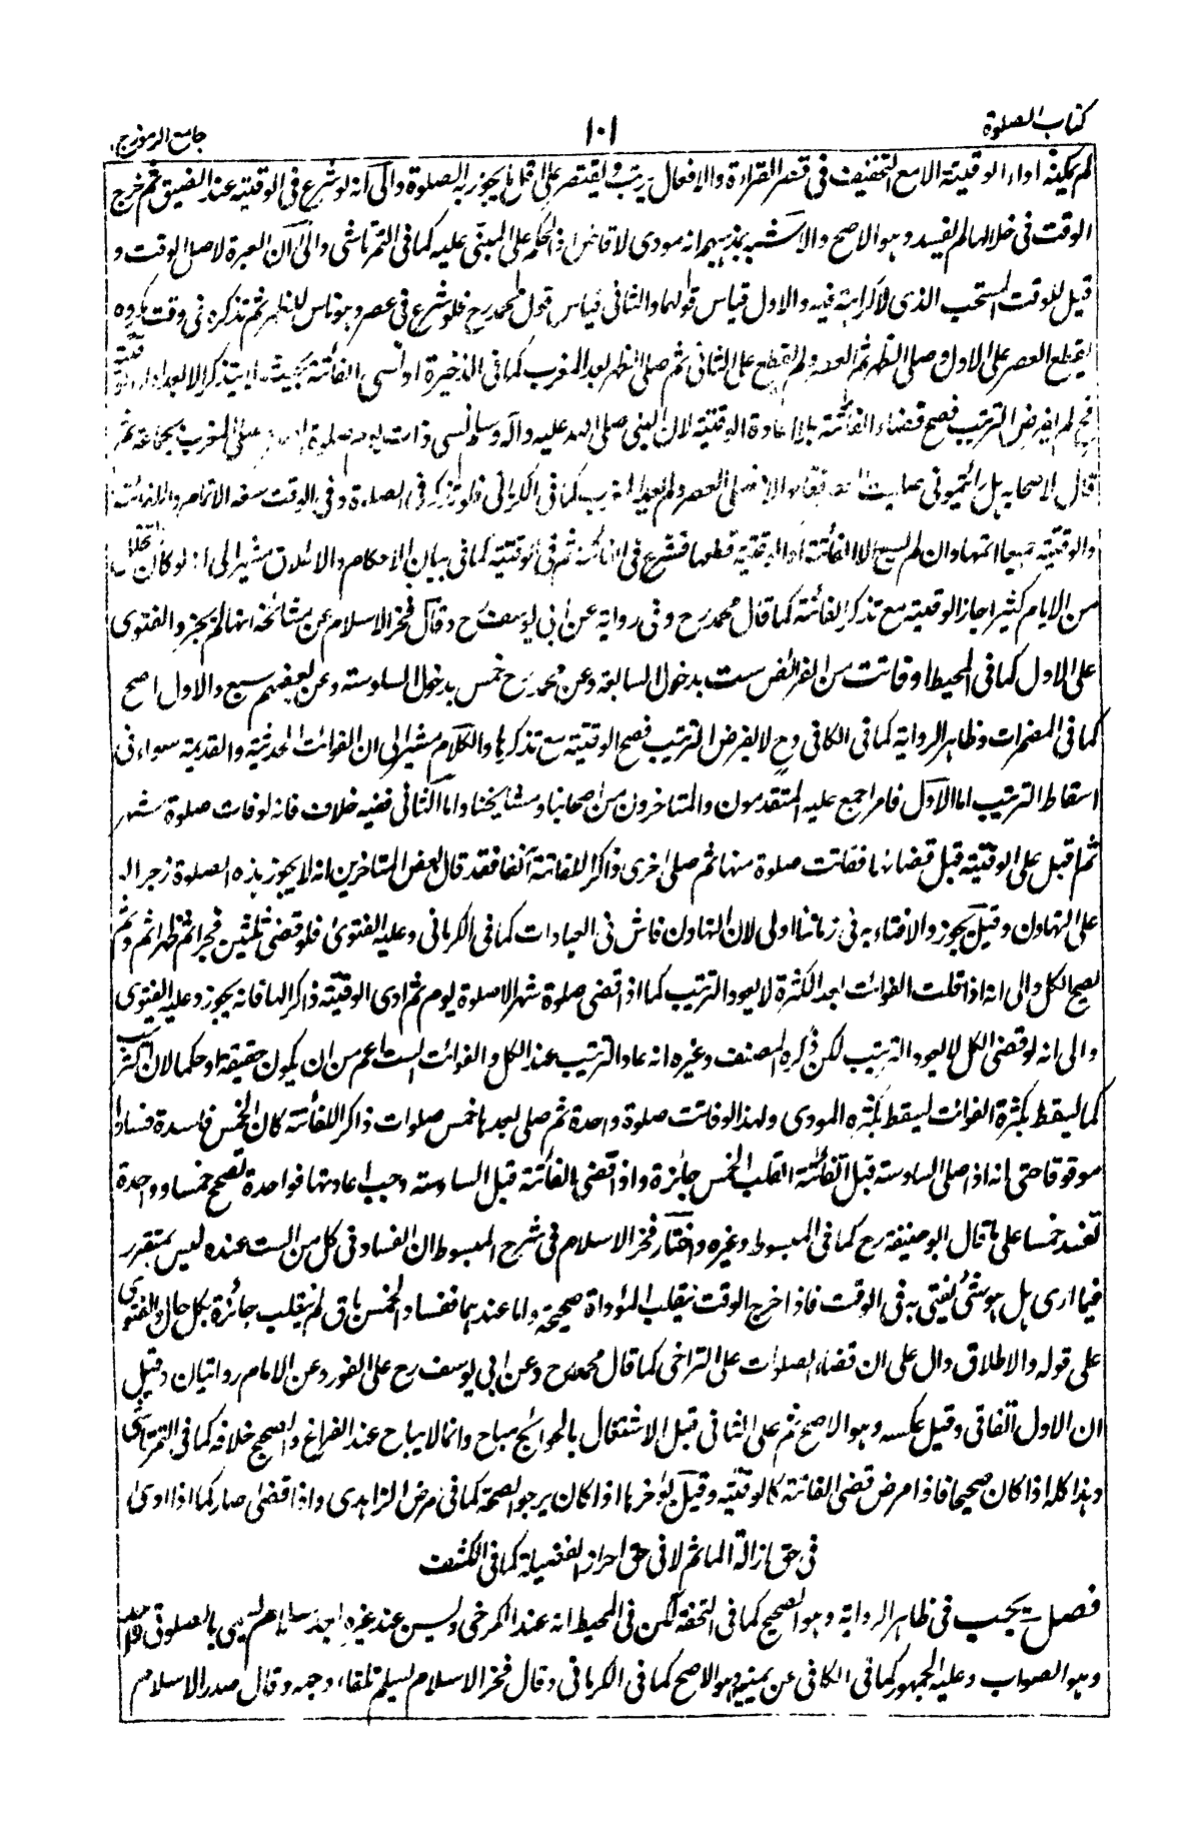 كتاب الصلوة
١٠١
جامع الرموز ج
لم يمكنه اداء الوقتية الا مع التخفيف في قصر القراءة والافعال يرتب ويقتصر على اقل ما يجوز به الصلوة والى انه لو شرع في الوقتية عند الضيق ثم خرج
الوقت في خلالها لم يفسد وهو الاصح والاشبه بمذهبهم انه مودى لا قاض اذ الحكم على المبنى عليه كما في التمرتاشي والى ان العبرة لاصل الوقت و
قيل للوقت المستحب الذى لا كراهة فيه والاول قياس قولهما والثاني قياس قول محمد رح فلو شرع في عصر وهو ناس للظهر ثم تذكره في وقت مكروه
يقطع العصر على الاول وصلى الظهر ثم العصر ولم يقطع على الثاني ثم صلى الظهر بعد المغرب كما في الذخيرة او نسى الفائتة بحيث لا يتذكر الا بعد اداء الوقتية
فح لم يفرض الترتيب فصح قضاء الفائتة بلا اعادة الوقتية لان النبى صلى الله عليه وآله وسلم نسى ذات يوم صلوة العصر وصلى المغرب بجماعة ثم
قال لاصحابه هل رأيتمونى صليت العصر فقالوا لا فصلى العصر ولم يعد المغرب كما في الكرمانى فلو تذكر في الصلوة وفي الوقت سعة
والوقتية جميعا اتمها وان لم يسع الا الفائتة او الوقتية قطعها فشرع في الفائتة ثم في الوقتية كما في بيان الاحكام والاطلاق مشير الى انه لو كان
من الايام كثيرا جاز الوقتية مع تذكر الفائتة كما قال محمد رح وفى رواية عن ابى يوسف رح وقال فخر الاسلام عن مشائخه انها لم يجز والفتوى
على الاول كما في المحيط او فاتت من الفرائض ست بدخول السابعة وعن محمد رح خمس بدخول السادسة وعن بعضهم سبع والاول اصح
كما في المضمرات وظاهر الرواية كما في الكافى وح لا يفرض الترتيب فصح الوقتية مع تذكرها والكلام مشير الى ان الفوائت الحديثة والقديمة سواء في
اسقاط الترتيب اما الاول فامر اجمع عليه المتقدمون والمتاخرون من اصحابنا ومشايخنا واما الثاني ففيه خلاف فانه لو فات صلوة شهر
ثم اقبل على الوقتية قبل قضائها ففاتت صلوة منها ثم صلى اخرى ذاكرا للفائتة آنفا فقد قال بعض المتاخرين انه لا يجوز هذه الصلوة زجرا له
على التهاون وقيل يجوز والافتاء به في زماننا اولى لان التهاون فاش في العبادات كما في الكرمانى وعليه الفتوى فلو قضى ثلثين فجرا ثم ظهرا ثم وثم
يصح الكل والى انه اذا قلت الفوائت بعد الكثرة لا يعود الترتيب كما اذا قضى صلوة شهر الا صلوة يوم ثم ادى الوقتية ذاكرا لها فانه يجوز وعليه الفتوى
والى انه لو قضى الكل لا يعود الترتيب لكن ذكره المصنف وغيره انه عاد الترتيب عند الكل والفوائت الست اعم من ان يكون حقيقة او حكما لان الترتيب
كما يسقط بكثرة الفوائت يسقط بكثرة المودى ولهذا لو فاتت صلوة واحدة ثم صلى بعدها خمس صلوات ذاكرا للفائتة كان الخمس فاسدة فسادا
موقوفا حتى انه اذا صلى السادسة قبل الفائتة انقلب الخمس جائزة واذا قضى الفائتة قبل السادسة وجب اعادتها فواحدة تصحح خمسا وواحدة
تفسد خمسا على ما قال ابو حنيفة رح كما في المبسوط وغيره واختار فخر الاسلام في شرح المبسوط ان الفساد في كل من الست عنده ليس بمتقرر
فيما ارى بل هو شئ يفتى به في الوقت فاذا خرج الوقت ينقلب المؤداة صحيحة واما عندهما ففساد الخمس باق لم ينقلب جائزة بكل حال والفتوى
على قوله والاطلاق دال على ان قضاء الصلوات على التراخى كما قال محمد رح وعن ابى يوسف رح على الفور وعن الامام روايتان وقيل
ان الاول اتفاقى وقيل عكسه وهو الاصح ثم على الثانى قيل الاشتغال بالحوائج مباح وانما لا يباح عند الفراغ والصحيح خلافه كما في التمرتاشى
وهذا كله اذا كان صحيحا فاذا مرض قضى الفائتة كالوقتية وقيل يؤخرها اذا كان يرجو الصحة كما في مرض الزاهدى واذا قضى صار كما اذا ادى
في حق ازالة الماثم لا في حق احراز الفضيلة كما في الكشف
فصل يجب في ظاهر الرواية وهو الصحيح كما في التحفة لكن في المحيط انه عند الكرخى وليس عند غيره بعد سلام
وهو الصواب وعليه الجمهور كما في الكافى عن يمينه وهو الاصح كما في الكرمانى وقال فخر الاسلام يسلم تلقاء وجهه وقال صدر الاسلام